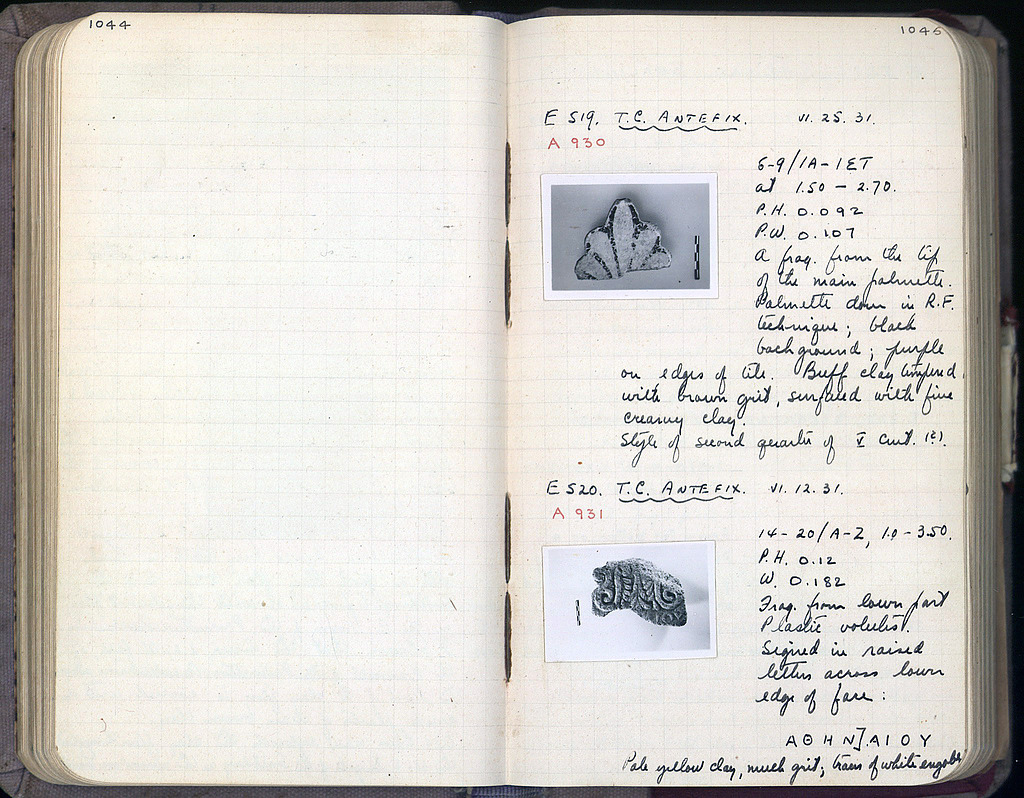 1044
1045
E 519. T.C. ANTEFIX. VI. 25. 31.
A 930
6-9/IA-IET
at 1.50 - 2.70.
P.H. 0.092
P.W. 0.107
A frag. from the tip
of the main palmette.
Palmette done in R.F.
technique; black
background; purple
on edges of tile. Buff clay tempered
with brown grit, surfaced with fine
creamy clay.
Style of second quarter of V Cent. (?).
E 520. T.C. ANTEFIX. VI. 12. 31.
A 931
14-20/A-Z, 1.0-3.50.
P.H. 0.12
W. 0.182
Frag. from lower part
Plastic volutes.
Signed in raised
letters across lower
edge of face:
ΑΘΗΝ]ΑΙΟΥ
Pale yellow clay, much grit; traces of white engobe